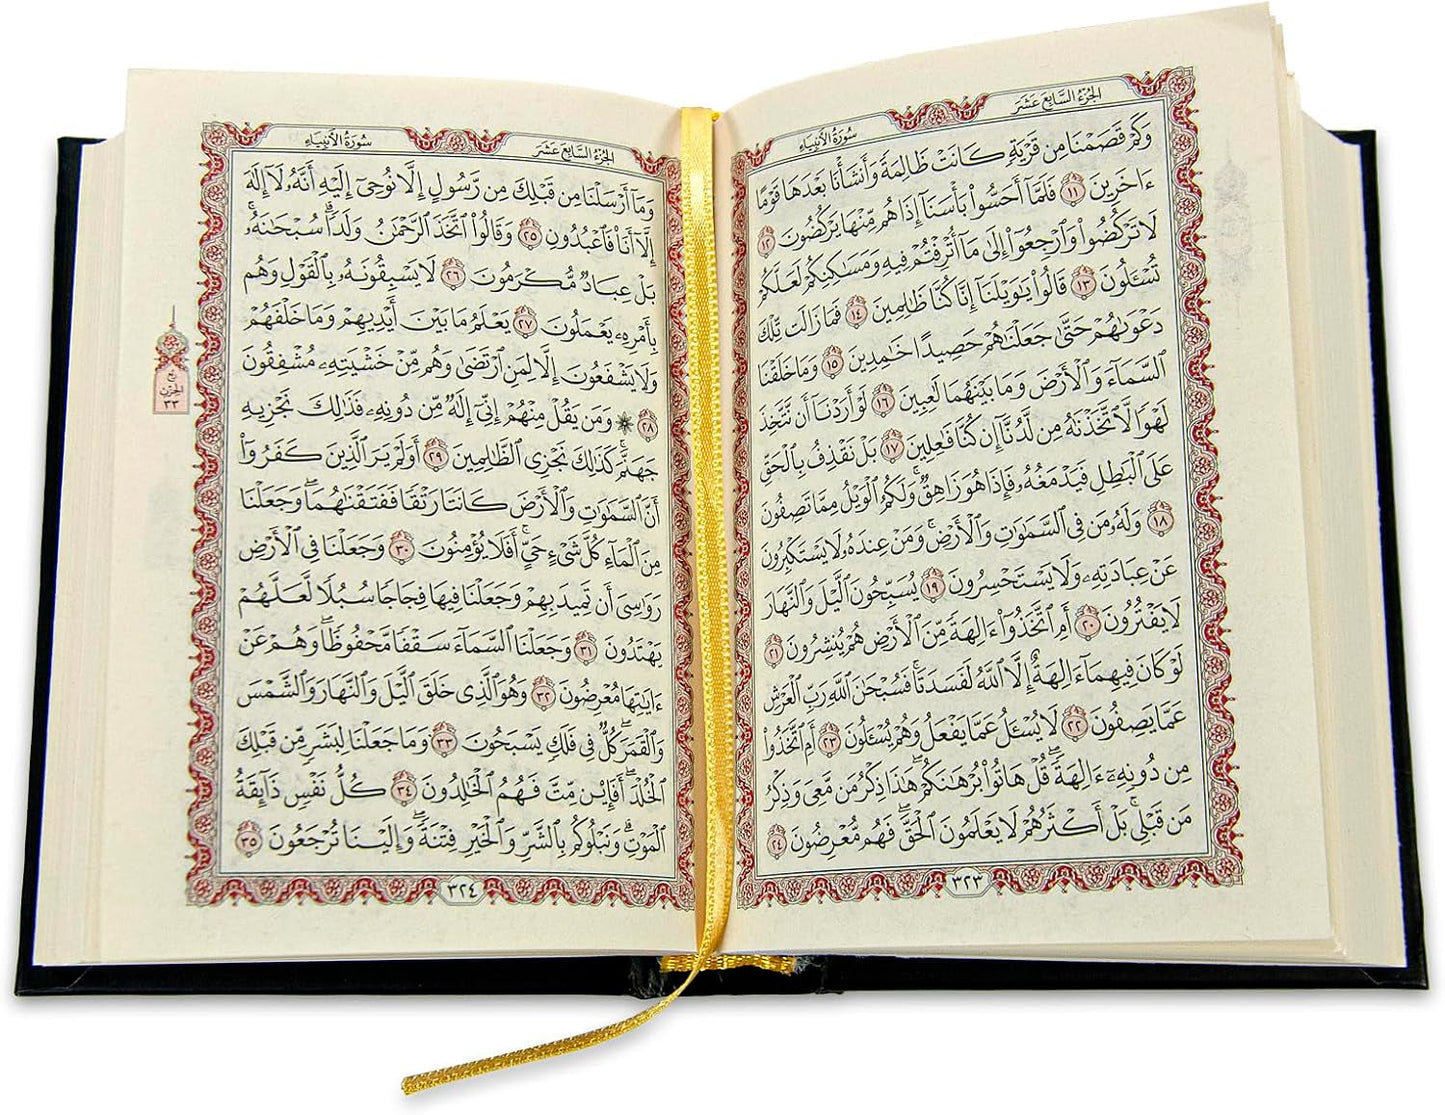 الجُزْءُ السَّابِعَ عَشَرَ
سُورَةُ الأَنبِيَاءِ
وَكَمْ قَصَمْنَا مِن قَرْيَةٍ كَانَتْ ظَالِمَةً وَأَنشَأْنَا بَعْدَهَا قَوْمًا
ءَاخَرِينَ ١١ فَلَمَّآ أَحَسُّوا۟ بَأْسَنَآ إِذَا هُم مِّنْهَا يَرْكُضُونَ ١٢
لَا تَرْكُضُوا۟ وَٱرْجِعُوٓا۟ إِلَىٰ مَآ أُتْرِفْتُمْ فِيهِ وَمَسَـٰكِنِكُمْ لَعَلَّكُمْ
تُسْـَٔلُونَ ١٣ قَالُوا۟ يَـٰوَيْلَنَآ إِنَّا كُنَّا ظَـٰلِمِينَ ١٤ فَمَا زَالَت تِّلْكَ
دَعْوَىٰهُمْ حَتَّىٰ جَعَلْنَـٰهُمْ حَصِيدًا خَـٰمِدِينَ ١٥ وَمَا خَلَقْنَا
ٱلسَّمَآءَ وَٱلْأَرْضَ وَمَا بَيْنَهُمَا لَـٰعِبِينَ ١٦ لَوْ أَرَدْنَآ أَن نَّتَّخِذَ
لَهْوًا لَّٱتَّخَذْنَـٰهُ مِن لَّدُنَّآ إِن كُنَّا فَـٰعِلِينَ ١٧ بَلْ نَقْذِفُ بِٱلْحَقِّ
عَلَى ٱلْبَـٰطِلِ فَيَدْمَغُهُۥ فَإِذَا هُوَ زَاهِقٌ ۚ وَلَكُمُ ٱلْوَيْلُ مِمَّا تَصِفُونَ
١٨ وَلَهُۥ مَن فِى ٱلسَّمَـٰوَٰتِ وَٱلْأَرْضِ ۚ وَمَنْ عِندَهُۥ لَا يَسْتَكْبِرُونَ
عَنْ عِبَادَتِهِۦ وَلَا يَسْتَحْسِرُونَ ١٩ يُسَبِّحُونَ ٱلَّيْلَ وَٱلنَّهَارَ
لَا يَفْتُرُونَ ٢٠ أَمِ ٱتَّخَذُوٓا۟ ءَالِهَةً مِّنَ ٱلْأَرْضِ هُمْ يُنشِرُونَ ٢١
لَوْ كَانَ فِيهِمَآ ءَالِهَةٌ إِلَّا ٱللَّهُ لَفَسَدَتَا ۚ فَسُبْحَـٰنَ ٱللَّهِ رَبِّ ٱلْعَرْشِ
عَمَّا يَصِفُونَ ٢٢ لَا يُسْـَٔلُ عَمَّا يَفْعَلُ وَهُمْ يُسْـَٔلُونَ ٢٣ أَمِ ٱتَّخَذُوا۟
مِن دُونِهِۦٓ ءَالِهَةً ۖ قُلْ هَاتُوا۟ بُرْهَـٰنَكُمْ ۖ هَـٰذَا ذِكْرُ مَن مَّعِىَ وَذِكْرُ
مَن قَبْلِى ۗ بَلْ أَكْثَرُهُمْ لَا يَعْلَمُونَ ٱلْحَقَّ ۖ فَهُم مُّعْرِضُونَ ٢٤
٣٢٣
الجُزْءُ السَّابِعَ عَشَرَ
سُورَةُ الأَنبِيَاءِ
وَمَآ أَرْسَلْنَا مِن قَبْلِكَ مِن رَّسُولٍ إِلَّا نُوحِىٓ إِلَيْهِ أَنَّهُۥ لَآ إِلَـٰهَ
إِلَّآ أَنَا۠ فَٱعْبُدُونِ ٢٥ وَقَالُوا۟ ٱتَّخَذَ ٱلرَّحْمَـٰنُ وَلَدًا ۗ سُبْحَـٰنَهُۥ ۚ
بَلْ عِبَادٌ مُّكْرَمُونَ ٢٦ لَا يَسْبِقُونَهُۥ بِٱلْقَوْلِ وَهُم
بِأَمْرِهِۦ يَعْمَلُونَ ٢٧ يَعْلَمُ مَا بَيْنَ أَيْدِيهِمْ وَمَا خَلْفَهُمْ
وَلَا يَشْفَعُونَ إِلَّا لِمَنِ ٱرْتَضَىٰ وَهُم مِّنْ خَشْيَتِهِۦ مُشْفِقُونَ
٢٨ ۞ وَمَن يَقُلْ مِنْهُمْ إِنِّىٓ إِلَـٰهٌ مِّن دُونِهِۦ فَذَٰلِكَ نَجْزِيهِ
جَهَنَّمَ ۚ كَذَٰلِكَ نَجْزِى ٱلظَّـٰلِمِينَ ٢٩ أَوَلَمْ يَرَ ٱلَّذِينَ كَفَرُوٓا۟
أَنَّ ٱلسَّمَـٰوَٰتِ وَٱلْأَرْضَ كَانَتَا رَتْقًا فَفَتَقْنَـٰهُمَا ۖ وَجَعَلْنَا
مِنَ ٱلْمَآءِ كُلَّ شَىْءٍ حَىٍّ ۖ أَفَلَا يُؤْمِنُونَ ٣٠ وَجَعَلْنَا فِى ٱلْأَرْضِ
رَوَٰسِىَ أَن تَمِيدَ بِهِمْ وَجَعَلْنَا فِيهَا فِجَاجًا سُبُلًا لَّعَلَّهُمْ
يَهْتَدُونَ ٣١ وَجَعَلْنَا ٱلسَّمَآءَ سَقْفًا مَّحْفُوظًا ۖ وَهُمْ عَنْ
ءَايَـٰتِهَا مُعْرِضُونَ ٣٢ وَهُوَ ٱلَّذِى خَلَقَ ٱلَّيْلَ وَٱلنَّهَارَ وَٱلشَّمْسَ
وَٱلْقَمَرَ ۖ كُلٌّ فِى فَلَكٍ يَسْبَحُونَ ٣٣ وَمَا جَعَلْنَا لِبَشَرٍ مِّن قَبْلِكَ
ٱلْخُلْدَ ۖ أَفَإِي۟ن مِّتَّ فَهُمُ ٱلْخَـٰلِدُونَ ٣٤ كُلُّ نَفْسٍ ذَآئِقَةُ
ٱلْمَوْتِ ۗ وَنَبْلُوكُم بِٱلشَّرِّ وَٱلْخَيْرِ فِتْنَةً ۖ وَإِلَيْنَا تُرْجَعُونَ ٣٥
٣٢٤
الحزب
٣٣